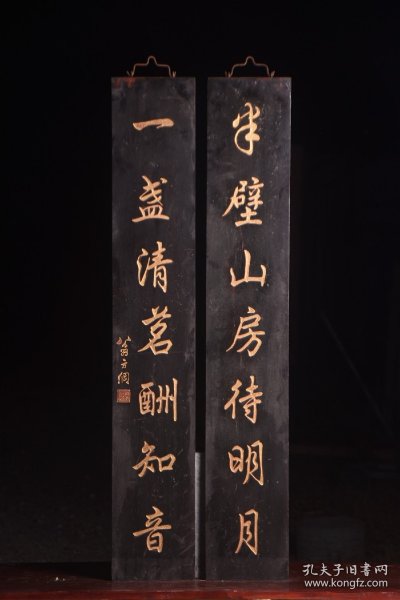 半壁山房待明月
一盏清茗酬知音
翁方纲
孔夫子旧书网
www.kongfz.com